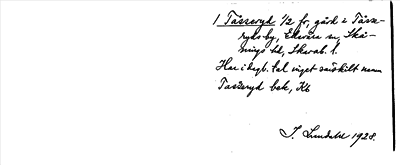 1 Tåsseryd 1/2 fr, gård i Tåsse-
ryds by, Ekeskog sn, Skå-
nings hd, Skarab. l.
Har i dagl. tal inget särskilt namn
Tasseryd bek, Kb
J. Lundahl 1928.